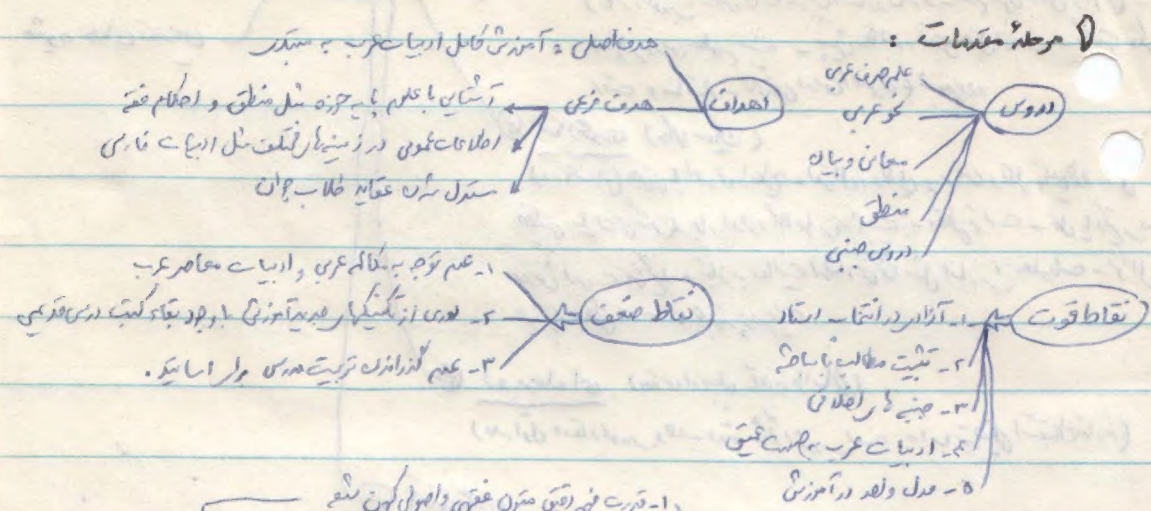 ۱ مرحلهٔ مقدمات :
دروس
علم صرف عربی
نحو عربی
معانی و بیان
منطق
دروس ضمنی
اهداف
هدف اصلی : آموزش کامل ادبیات عرب به مبتدی
هدف فرعی
آشنایی با علوم پایه حوزه مثل منطق و احکام فقه
اطلاعات عمومی در زمینه‌های مختلف مثل ادبیات فارسی
مستدل شدن عقاید طلاب جوان
نقاط قوت
۱- آزادی در انتخاب استاد
۲- تثبیت مطالب با مباحثه
۳- جنبه های اخلاقی
۴- ادبیات عرب به صورت عمیق
۵- مدل واحد در آموزش
نقاط ضعف
۱- عدم توجه به مکالمه عربی و ادبیات معاصر عرب
۲- دوری از تکنیکهای جدید آموزشی با وجود بقاء کتب درسی قدیمی
۳- عدم گذراندن تربیت مدرس برای اساتید .
۱- قدرت فهم دقیق متون فقهی و اصولی کهن شیعه